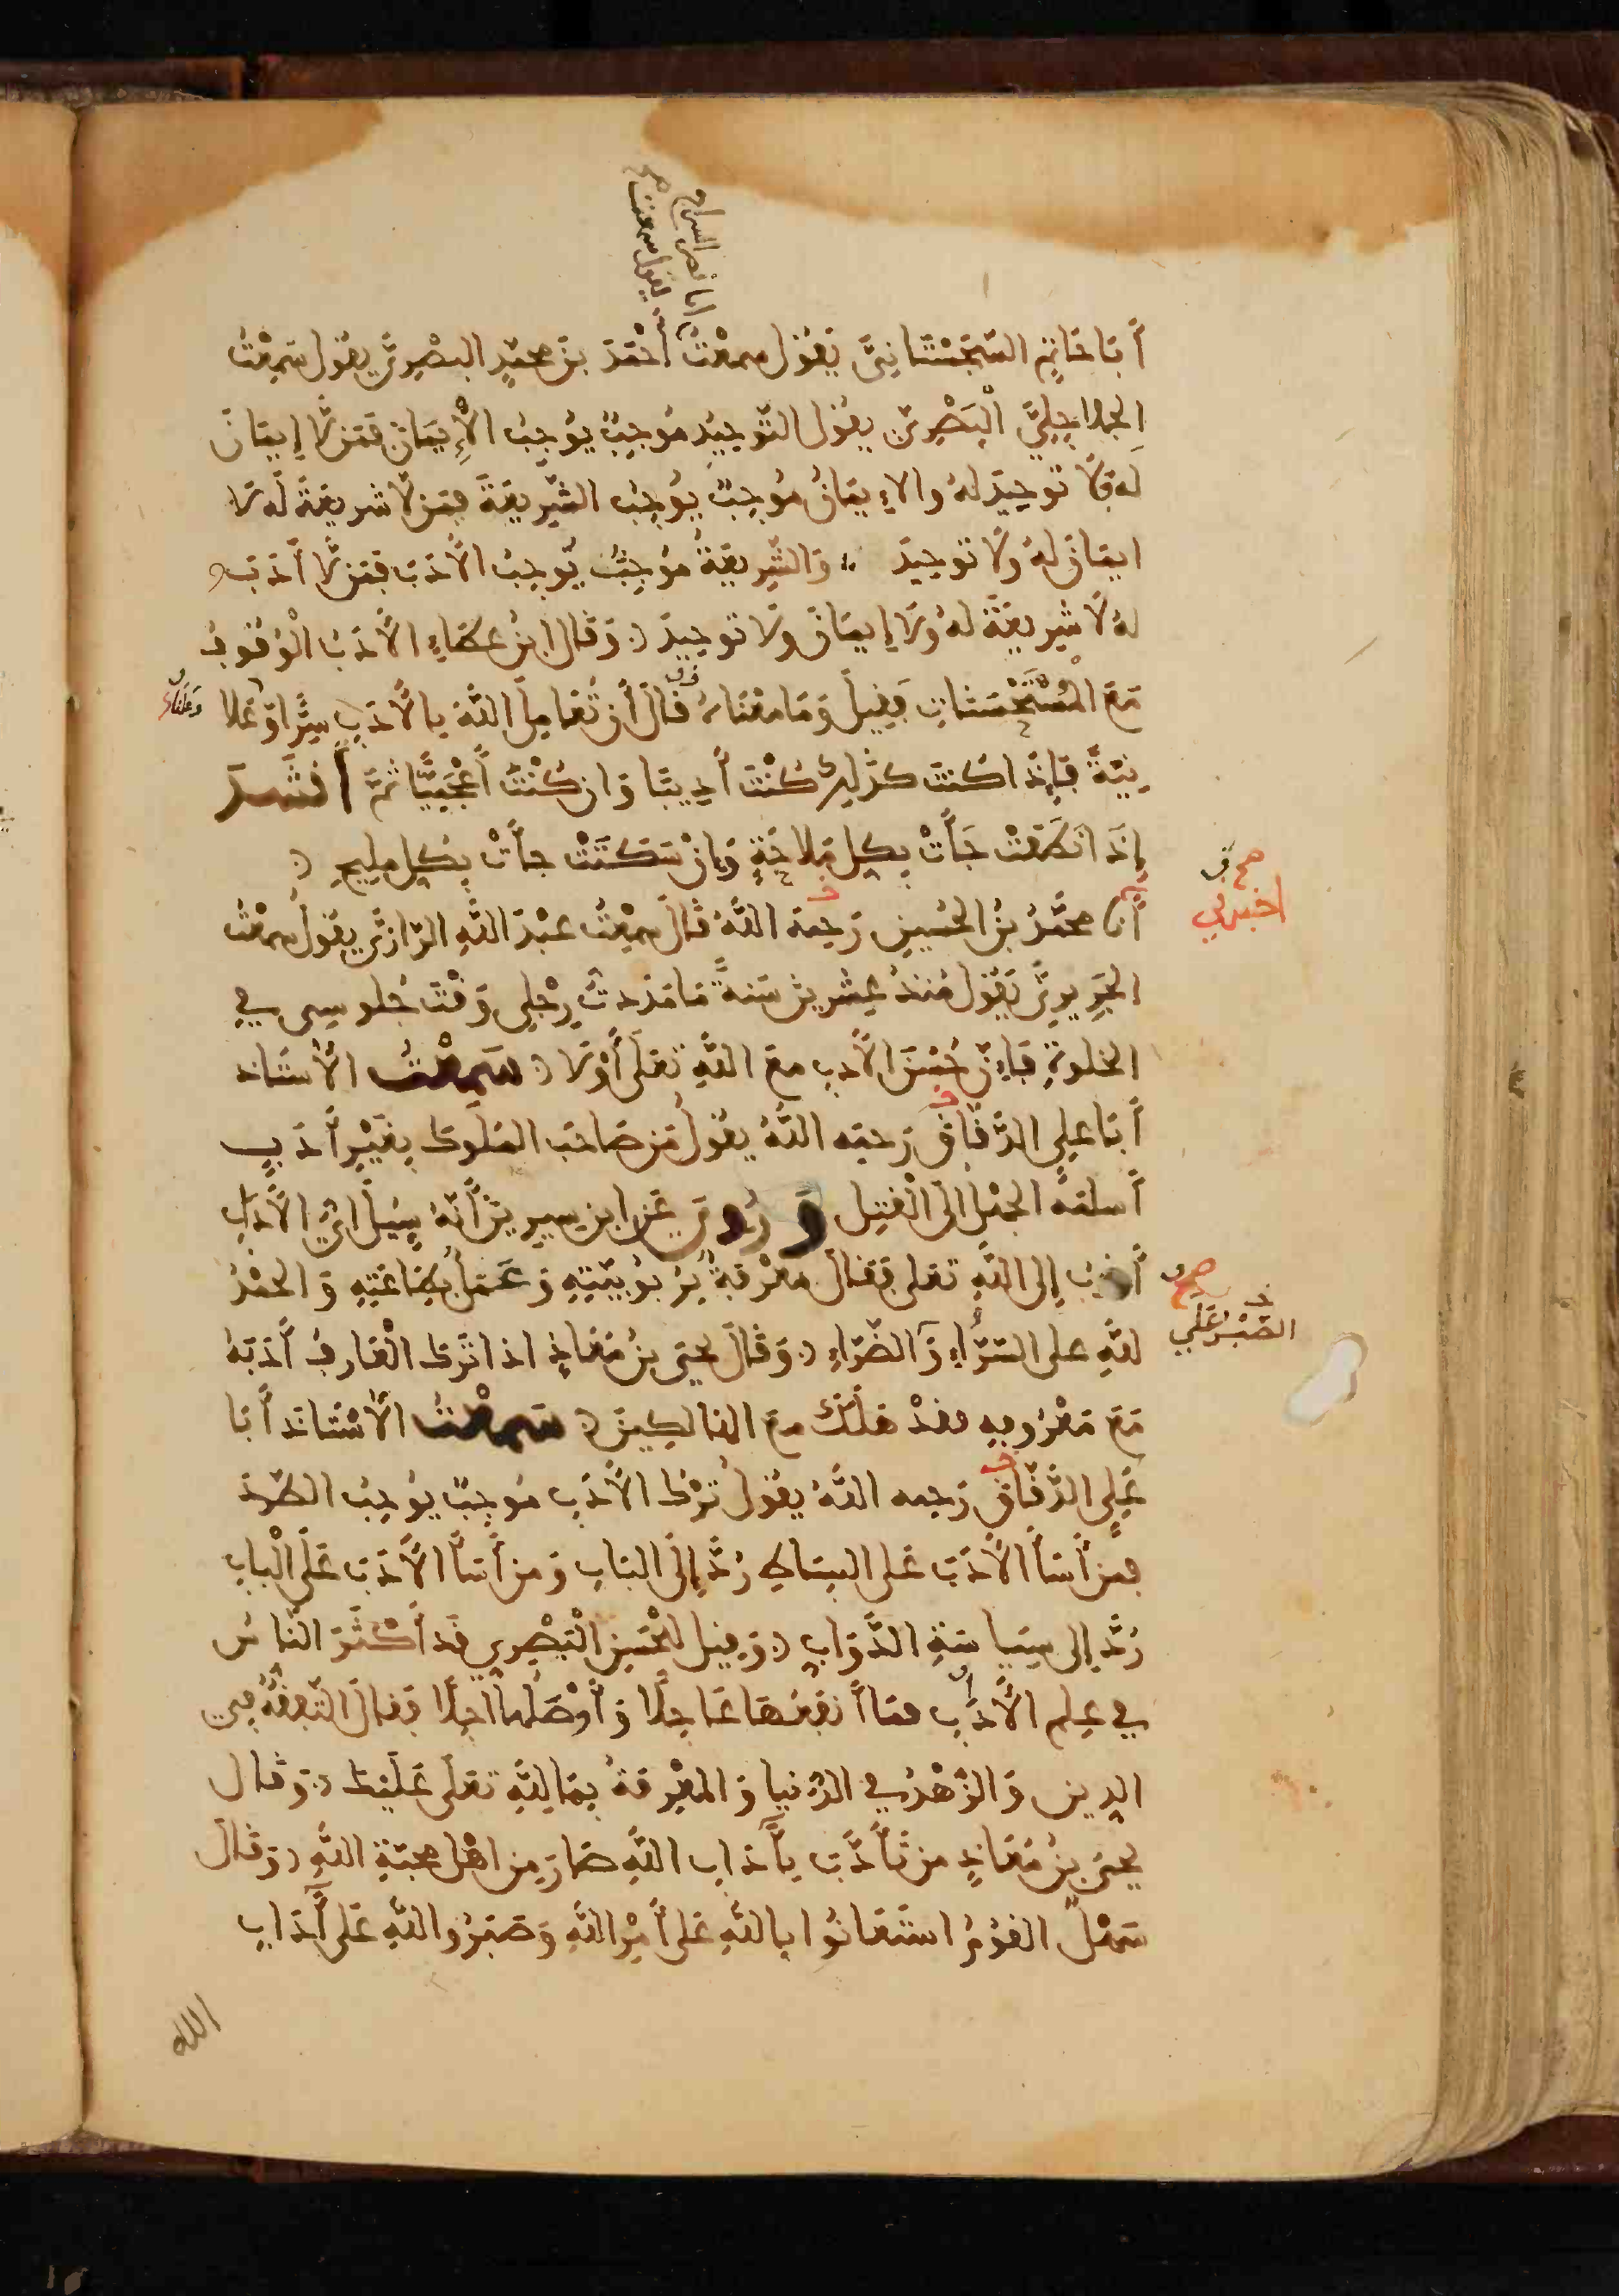 ابا نصر السراج
يقول سمعت صح
أَبَا حَاتِمٍ السِّجِسْتَانِيَّ يَقُولُ سمعْتُ أَحْمَدَ بنَ محمّدٍ البصْرِيَّ يقول سَمِعْتُ
الجلاجِلِيَّ الْبَصْرِيَّ يقُول التَّوحِيدُ مُوجِبٌ يُوجِبُ الْإِيمَانَ فَمَن لَّا إِيمَانَ
لَهُ فَلَا تَوحِيدَ لهُ والإِيمَانُ مُوجِبٌ يُوجِبُ الشَّرِيعَةَ فَمَن لَّا شَرِيعَةَ لَه لَا
ايمَانَ لهُ ولَا تَوحِيدَ وَالشَّرِيعَةُ مُوجِبٌ يُوجِبُ الأَدَبَ فَمَن لَّا أَدَبَ
لهُ لَا شَرِيعَةَ لهُ ولَا إِيمَانَ ولَا تَوحِيدَ وَقَال ابنُ عطَاءٍ الأَدَبُ الْوُقُوفُ
مَعَ الْمُسْتَحْسَنَاتِ فَقِيلَ وَمَا مَعْنَاهُ قَالَ أَن تُعَامِلَ اللَّهَ بِالأَدَبِ سِرًّا وَعَلَا
نِيَةً فَإِذَا كُنتَ كَذَلِكَ كُنْتَ أَدِيبًا وَان كُنْتَ أَعْجَمِيًّا ثمَّ أَنْشَدَ
إِذَا نَطَقَتْ جَاءَتْ بِكلِ مَلَاحَةٍ وَإنْ سَكَتَتْ جاءَتْ بِكلِ مليحِ
صح
اخبرني
أَنا محمَّدُ بنُ الحُسَينِ رَحِمَهُ اللَّهُ قَالَ سَمِعْتُ عَبْدَ اللَّهِ الرَّازِيَّ يقُولُ سمعْتُ
الجَرِيرِيَّ يَقُولُ مُنذُ عِشْرِينَ سَنَةً مَا مَدَدتُّ رِجْلِي وَقْتَ جُلُوسِي في
الخلوةِ فَإِنَّ حُسْنَ الأَدبِ مَعَ اللَّهِ تَعَلَى أَوْلَى سَمِعْتُ الأُسْتَاذ
أَبَا عَلِي الدَّقَّاق رَحمَه اللَّهُ يقُولُ مَن صَاحَبَ المُلُوكَ بِغَيْرِ أَدَبٍ
أَسلمَهُ الجَهْلُ الَى الْقَتلِ وَرُوِيَ عَنِ ابن سِيرِينَ أَنَّهُ سُئِلَ أَيُّ الأَدَابِ
أَقْرَبُ إِلَى اللَّهِ تعَلى فَقَالَ مَعْرِفَةٌ بِرُبُوبِيَّتِهِ وَعَمَلٌ بِطَاعَتِهِ وَالحمْدُ
صح
الصّبْرُ عَلَى
لِلَّهِ عَلَى السَّرَّاءِ وَالضَّرَّاءِ وَقَالَ يحيى بنُ مُعَاذٍ اذا تَرَكَ الْعَارِفُ أَدَبَهُ
مَعَ مَعْرُوفِهِ فقَدْ هَلَكَ معَ الهَالِكِينَ سَمِعْتُ الأُسْتَاذَ أَبَا
عَلِي الدَّقَّاقَ رَحِمَه اللَّهُ يقُولُ تَرْكُ الأَدَبِ مُوجِبٌ يُوجِبُ الطَّرْدَ
فَمَن أَسَاءَ الأَدَبَ عَلَى البِسَاطِ رُدَّ إِلَى البَابِ وَمَن أَسَاءَ الأَدَبَ عَلَى الْبابِ
رُدَّ إِلى سِيَاسَةِ الدَّوَابِّ وَقِيلَ لِلْحَسَنِ الْبَصْرِي قَد أَكْثَرَ النَّاسُ
في عِلمِ الأَدَبِ فمَا أَنفَعُهَا عَاجِلًا وَأَوْصَلُهَا اجِلًا فَقالَ التَّفَقُّهُ في
الدِين وَالزُّهْدُ في الدُّنيَا وَالمَعْرِفَةُ بِمَا لِلَّهِ تَعَلَى عَلَيْكَ وَقَالَ
يحيَى بنُ مُعَاذٍ من تَأَدَّبَ بِآدَابِ اللَّهِ صَارَ مِنَ اهْلِ محبّةِ اللَّهِ وَقَالَ
سَهْلٌ القَوْمُ استَعَانُوا بِاللَّهِ عَلَى أَمْرِ اللَّهِ وَصَبَرُوا لِلَّهِ عَلَى آدَابِ
الله